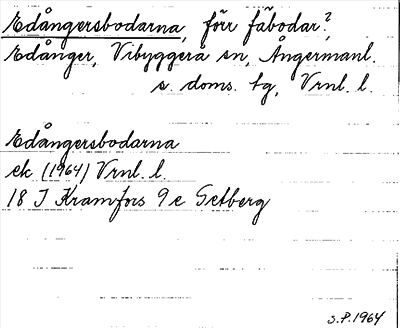 Edångersbodarna, förr fäbodar?,
Edånger, Vibyggerå sn, Ångermanl.
s. doms. tg, Vrnl. l.
Edångersbodarna
ek (1964) Vrnl. l.
18 I Kramfors 9 e Getberg
S.P. 1964